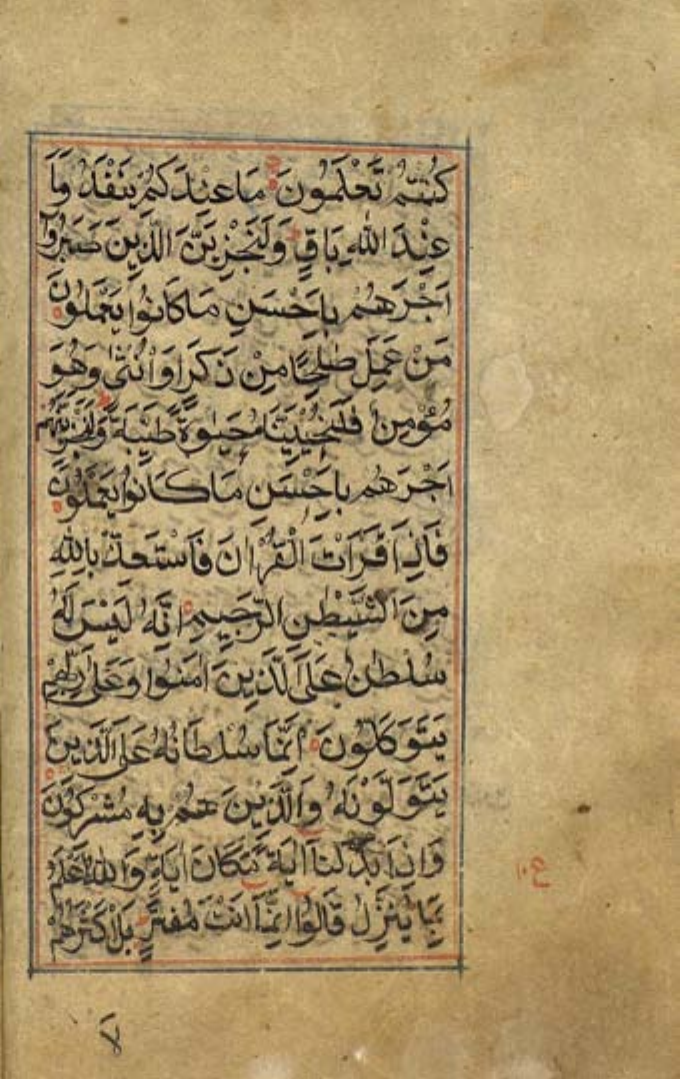 كُنْتُمْ تَعْلَمُونَ مَا عِنْدَكُمْ يَنْفَدُ وَمَا
عِنْدَ اللهِ بَاقٍ وَلَنَجْزِيَنَّ الَّذِينَ صَبَرُوٓا
اَجْرَهُمْ بِاَحْسَنِ مَا كَانُوا يَعْمَلُونَ
مَنْ عَمِلَ صٰلِحًا مِنْ ذَكَرٍ اَوْ اُنْثٰى وَهُوَ
مُؤْمِنٌ فَلَنُحْيِيَنَّهُ حَيٰوةً طَيِّبَةً وَلَنَجْزِيَنَّهُمْ
اَجْرَهُمْ بِاَحْسَنِ مَا كَانُوا يَعْمَلُونَ
فَاِذَا قَرَاْتَ الْقُرْاٰنَ فَاسْتَعِذْ بِاللهِ
مِنَ الشَّيْطٰنِ الرَّجِيمِ اِنَّهُ لَيْسَ لَهُ
سُلْطٰنٌ عَلَى الَّذِينَ اٰمَنُوا وَعَلٰى رَبِّهِمْ
يَتَوَكَّلُونَ اِنَّمَا سُلْطَانُهُ عَلَى الَّذِينَ
يَتَوَلَّوْنَهُ وَالَّذِينَ هُمْ بِهِ مُشْرِكُونَ
وَاِذَا بَدَّلْنَا اٰيَةً مَكَانَ اٰيَةٍ وَاللهُ اَعْلَمُ
بِمَا يُنَزِّلُ قَالُوا اِنَّمَا اَنْتَ مُفْتَرٍ بَلْ اَكْثَرُهُمْ